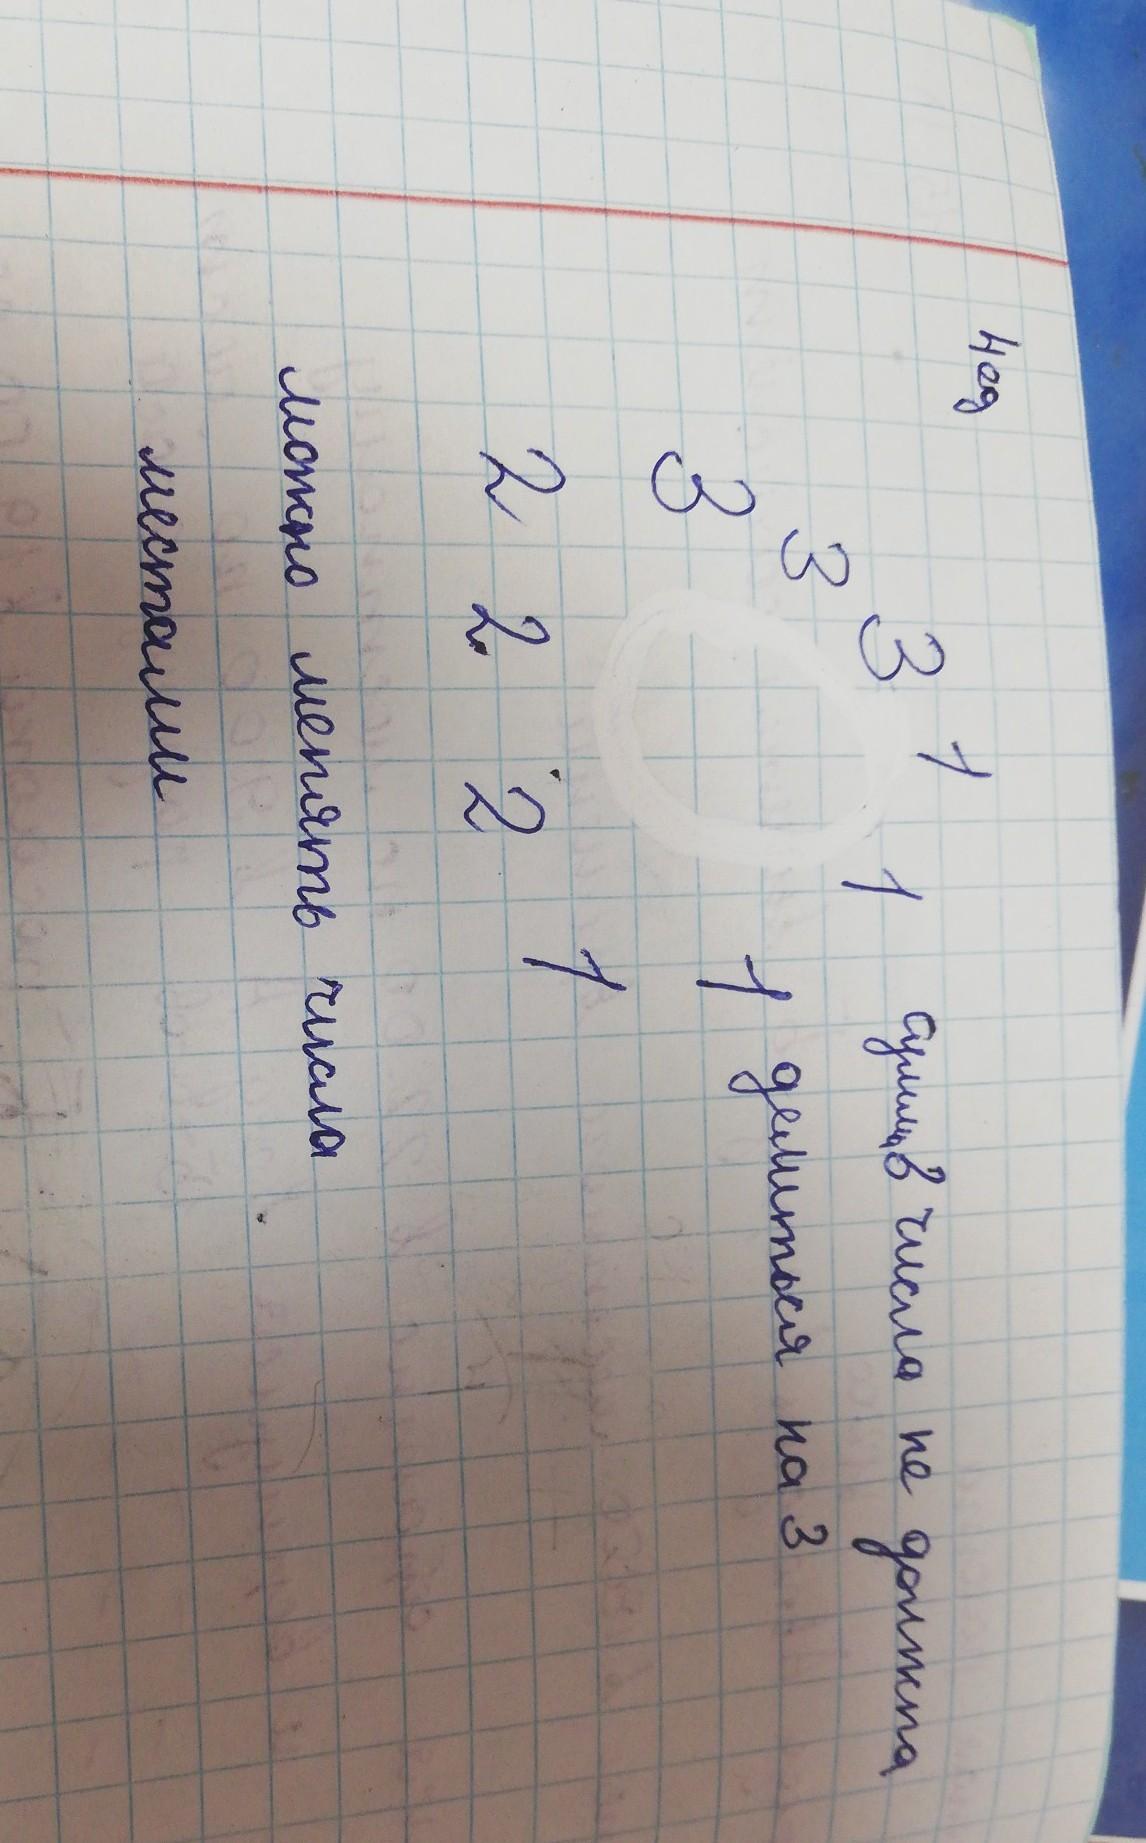 1
3 1 сумма 3 числа не должна
3
3 1 делиться на 3
1
2 2 2
можно менять числа
местами